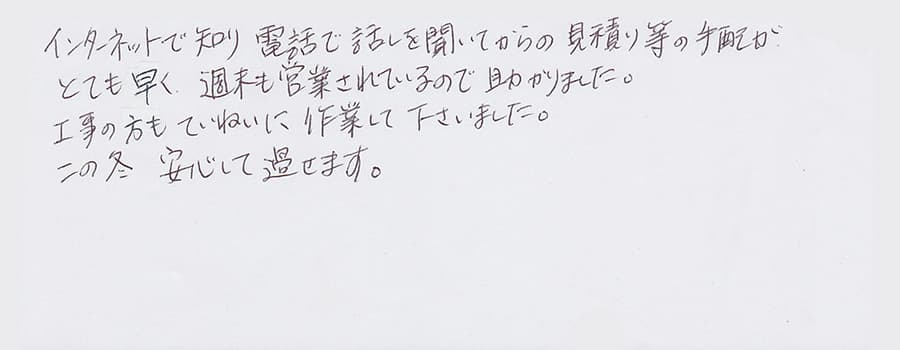 インターネットで知り 電話で話しを聞いてからの見積り等の手配が
とても早く、週末も営業されているので助かりました。
工事の方もていねいに作業して下さいました。
この冬 安心して過せます。